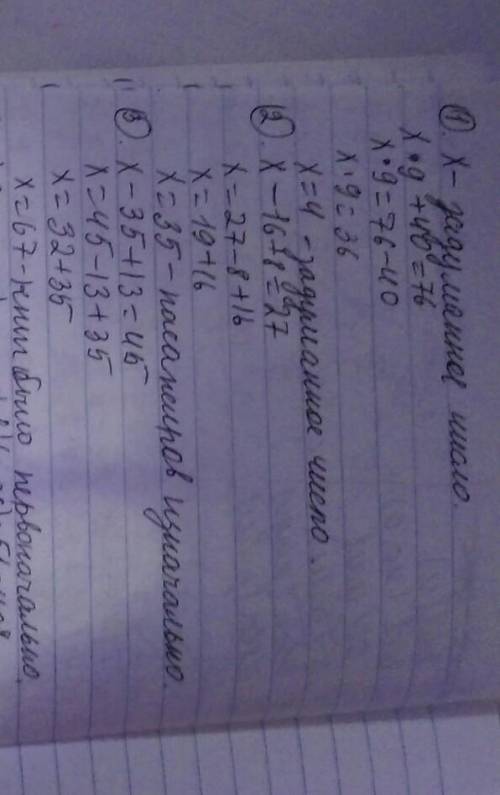 1). х - задуманное число.
х•9+40=76
х•9=76-40
х•9=36
х=4 - задуманное число.
2). х-16+8=27
х=27-8+16
х=19+16
х=35 - пасажиров изначально.
3). х-35+13=45
х=45-13+35
х=32+35
х=67 - книг было первоначально